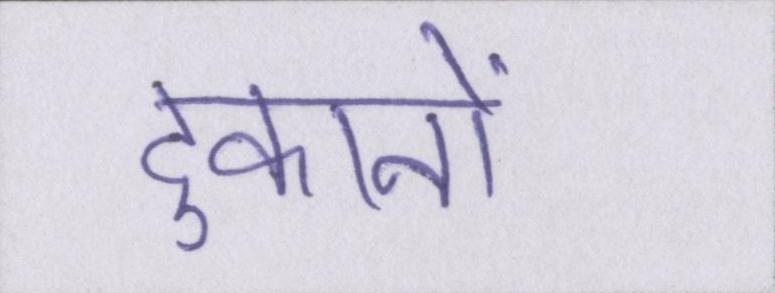 दुकानों